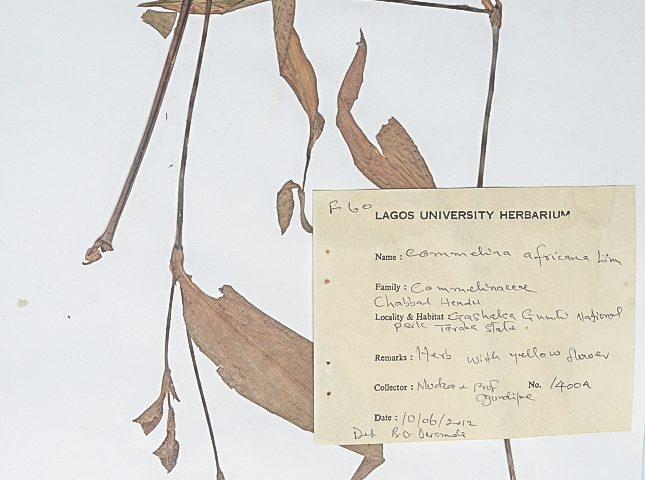 B 60
LAGOS UNIVERSITY HERBARIUM
Name : Commelina africana Linn
Family : Commelinaceae
Chabbal Hendu
Locality & Habitat Gashaka Gumti National
park Taraba State.
Remarks : Herb with yellow flower
Collector : & Prof No. 1400A
Ogundipe
Date : 10/06/2012
Det B.O. Daramola